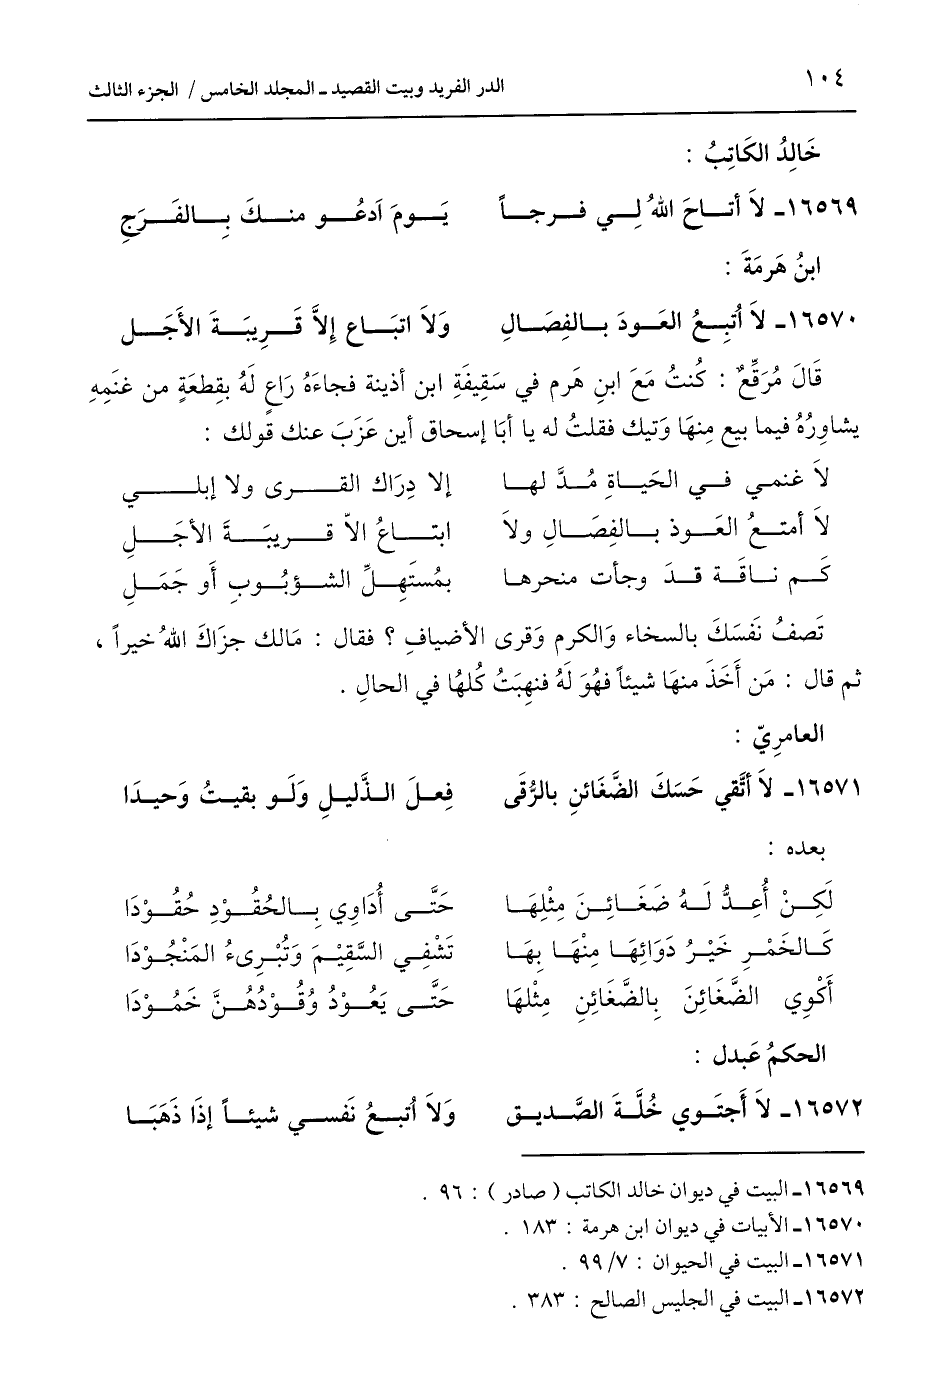 ١٠٤ الدر الفريد وبيت القصيد ـ المجلد الخامس / الجزء الثالث
خَالِدُ الكَاتِبُ :
١٦٥٦٩ـ لاَ أتــاحَ اللهُ لِــي فــرجــاً يَــومَ اَدعُــو منــكَ بِــالفَــرَجِ
ابنُ هَرمَةَ :
١٦٥٧٠ـ لاَ أُتبِــعُ العَــودَ بــالفِصَــالِ وَلاَ اتبَــاع إلاَّ قَــرِيبَــةَ الأَجَــلِ
قَالَ مُرَقِّعٌ : كُنتُ مَعَ ابنِ هَرم في سَقِيفَةِ ابن أذينة فجاءَهُ رَاعٍ لَهُ بقِطعَةٍ من غنَمِهِ
يشاورُهُ فيما بيع مِنهَا وَتيك فقلتُ له يا أبَا إسحاق أين عَزَبَ عنك قَولك :
لاَ غنمي فــي الحَيــاةِ مُــدَّ لهــا إلا دِرَاك القــرى ولا إبلــي
لاَ أمتــعُ العَــوذ بــالفِصَــالِ ولاَ ابتــاعُ الاّ قــرِيبَــةَ الأجَــلِ
كــم نــاقَــة قــدَ وجأت منحرهــا بمُستَهِلِّ الشــؤبُــوبِ أو جَمَــلِ
تَصفُ نَفسَكَ بالسخاء وَالكرم وَقرى الأضيافِ ؟ فقال : مَالك جزاكَ اللهُ خيراً ،
ثم قال : مَن أَخَذَ منهَا شيئاً فهُوَ لَهُ فنهِبَتُ كُلهُا في الحالِ .
العامرِيّ :
١٦٥٧١ـ لاَ أتَّقي حَسَكَ الضَّغائنِ بالرُّقَى فِعــلَ الــذَّليلِ وَلَو بقيــتُ وَحيــدَا
بعده :
لَكِــنْ أُعِــدُّ لَــهُ ضَغَــائِــنَ مِثْلِهَــا حَتَّــى أُدَاوِي بِــالحُقُــوْدِ حُقُــوْدَا
كَــالخَمْــرِ خَيْــرُ دَوَائِهَــا مِنْهَــا بِهَا تَشْفِــي السَّقِيْــمَ وَتُبْــرِىءُ المَنْجُــوْدَا
أَكْوِي الضَّغَائِنَ بِالضَّغَائِنِ مِثْلهَا حَتَّــى يَعُــوْدُ وُقُــوْدُهُــنَّ خَمُــوْدَا
الحكمُ عَبدل :
١٦٥٧٢ـ لاَ أَجتَــوي خُلَّةَ الصَّــديــق وَلاَ أُتبــعُ نَفســي شيئــاً إذَا ذَهَبَــا
١٦٥٦٩ـ البيت في ديوان خالد الكاتب ( صادر ) : ٩٦ .
١٦٥٧٠ـ الأبيات في ديوان ابن هرمة : ١٨٣ .
١٦٥٧١ـ البيت في الحيوان : ٧/ ٩٩ .
١٦٥٧٢ـ البيت في الجليس الصالح : ٣٨٣ .